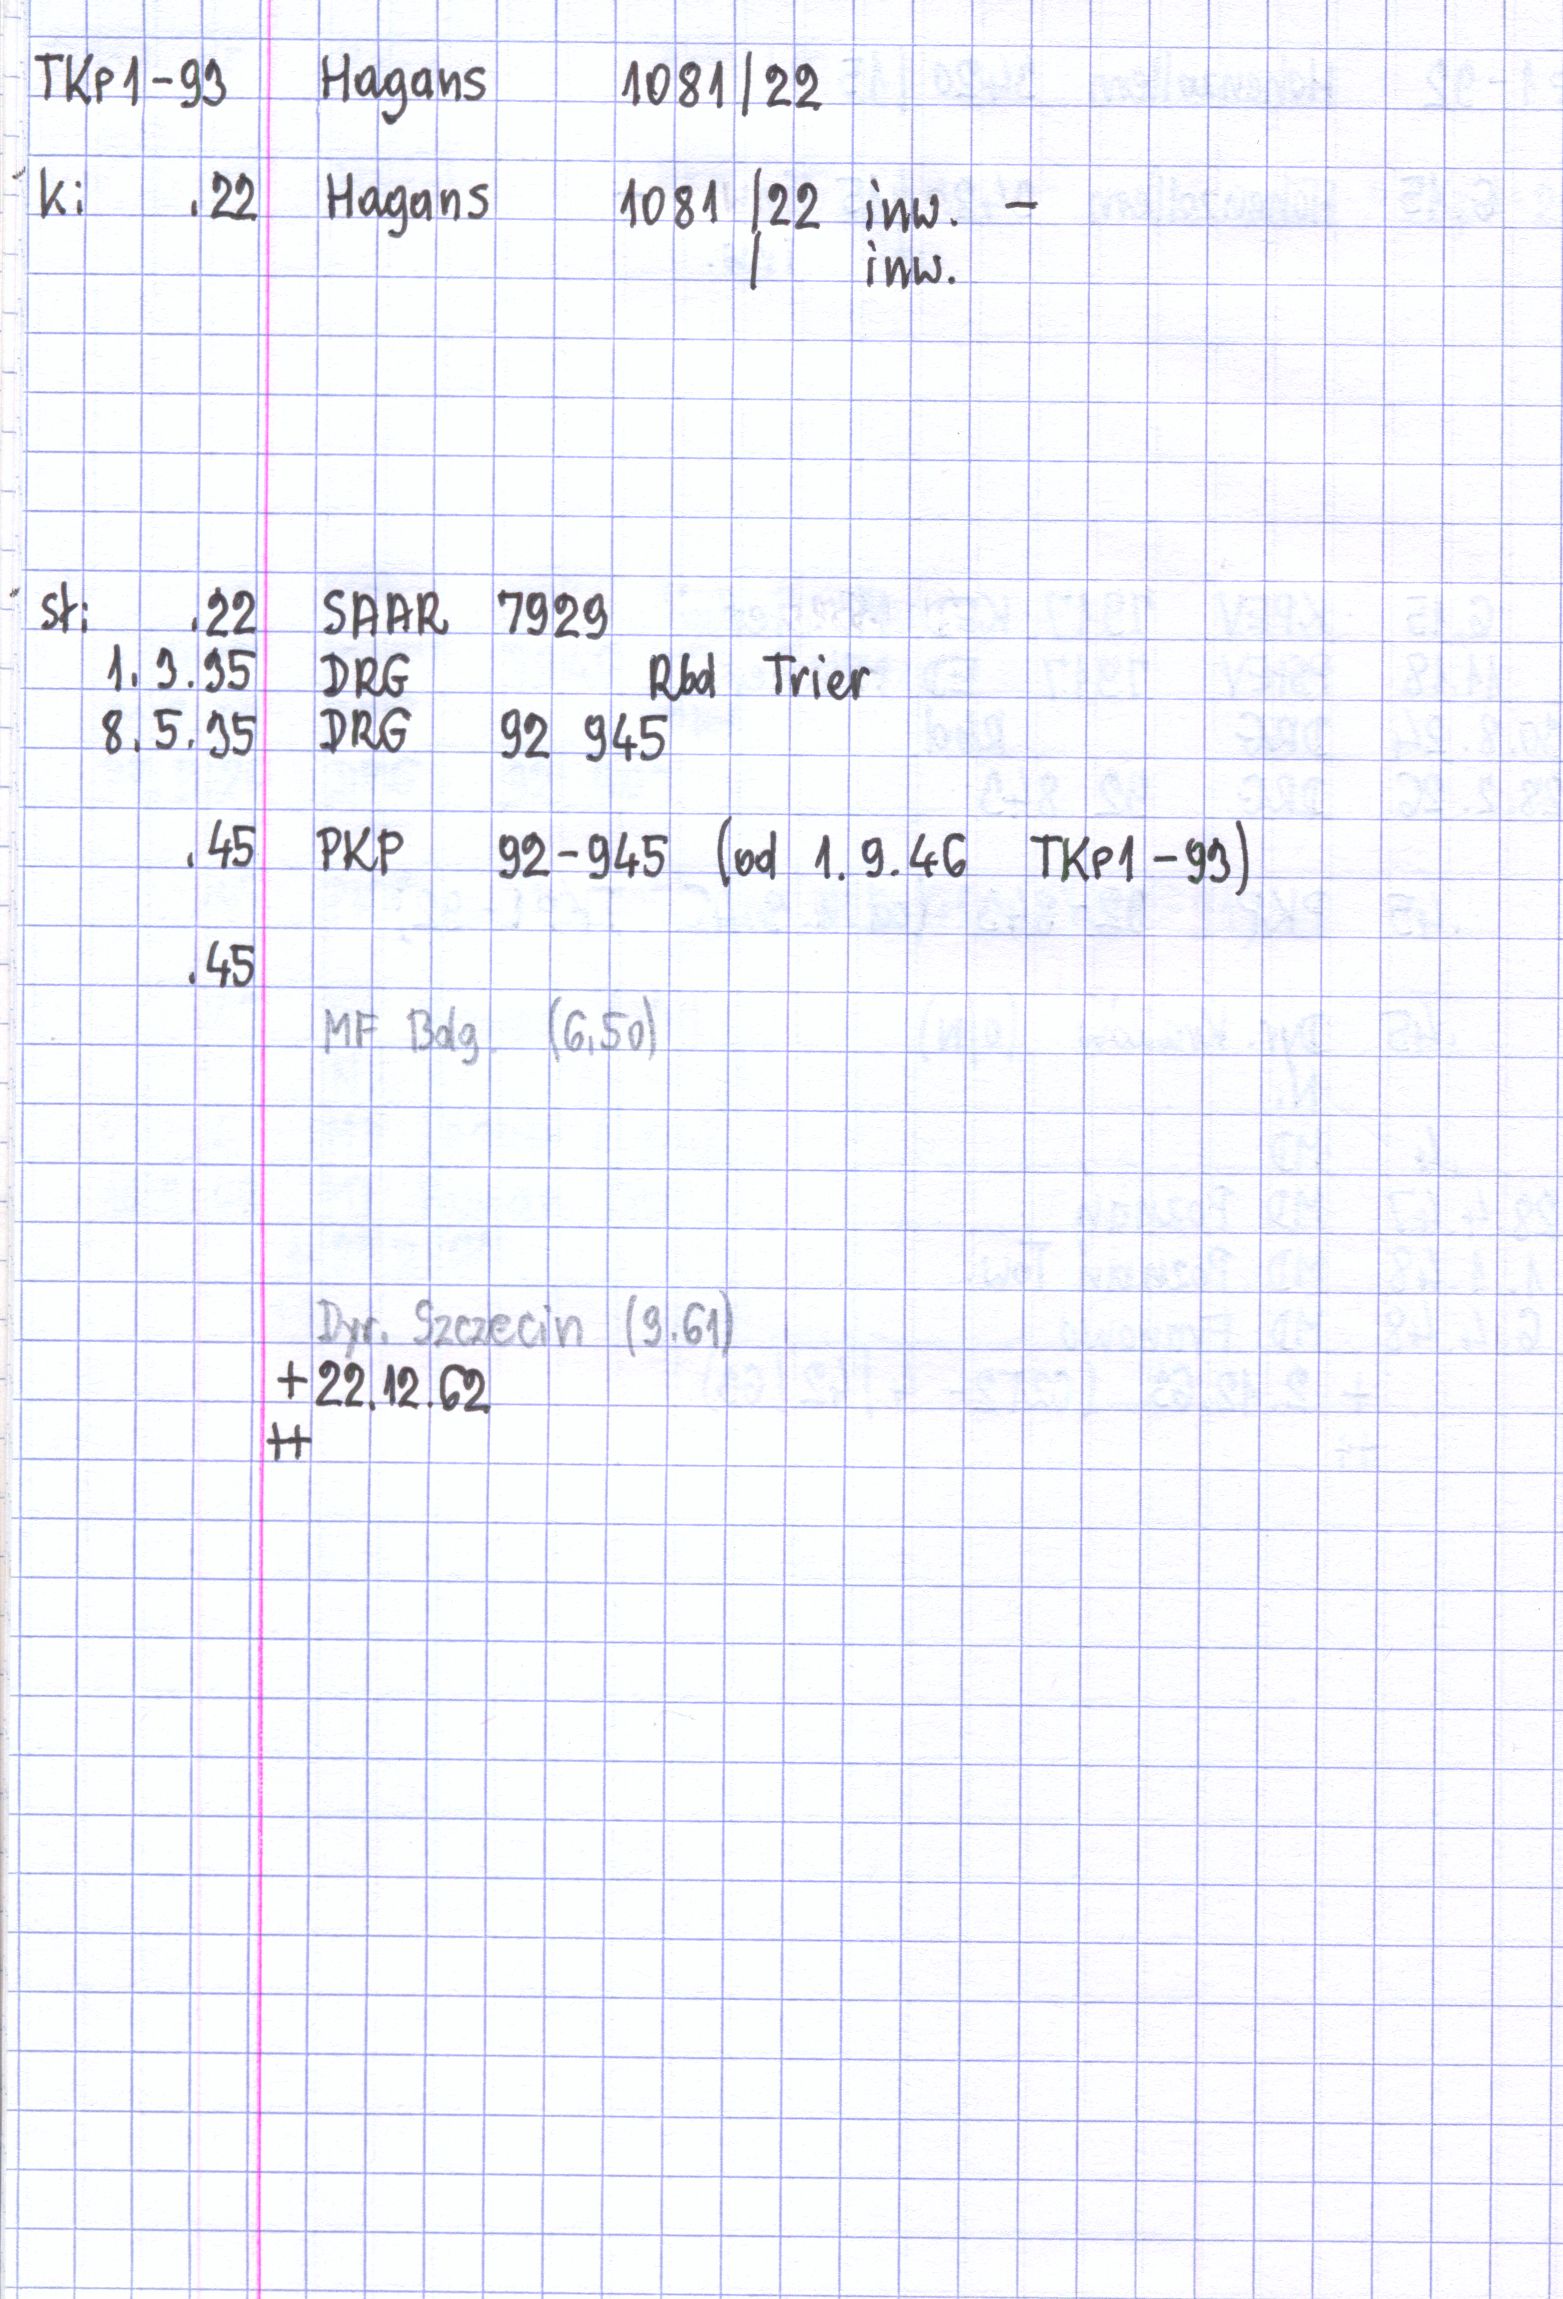 TKp1-93 Hagans 1081/22
ki .22 Hagans 1081/22 inw. -
/ inw.
st: .22 SAAR 7929
1.3.35 DRG Rbd Trier
8.5.35 DRG 92 945
.45 PKP 92-945 (od 1.9.46 TKp1-93)
.45
MF Bdg. (6.50)
Dyr. Szczecin (9.61)
+22.12.62
++